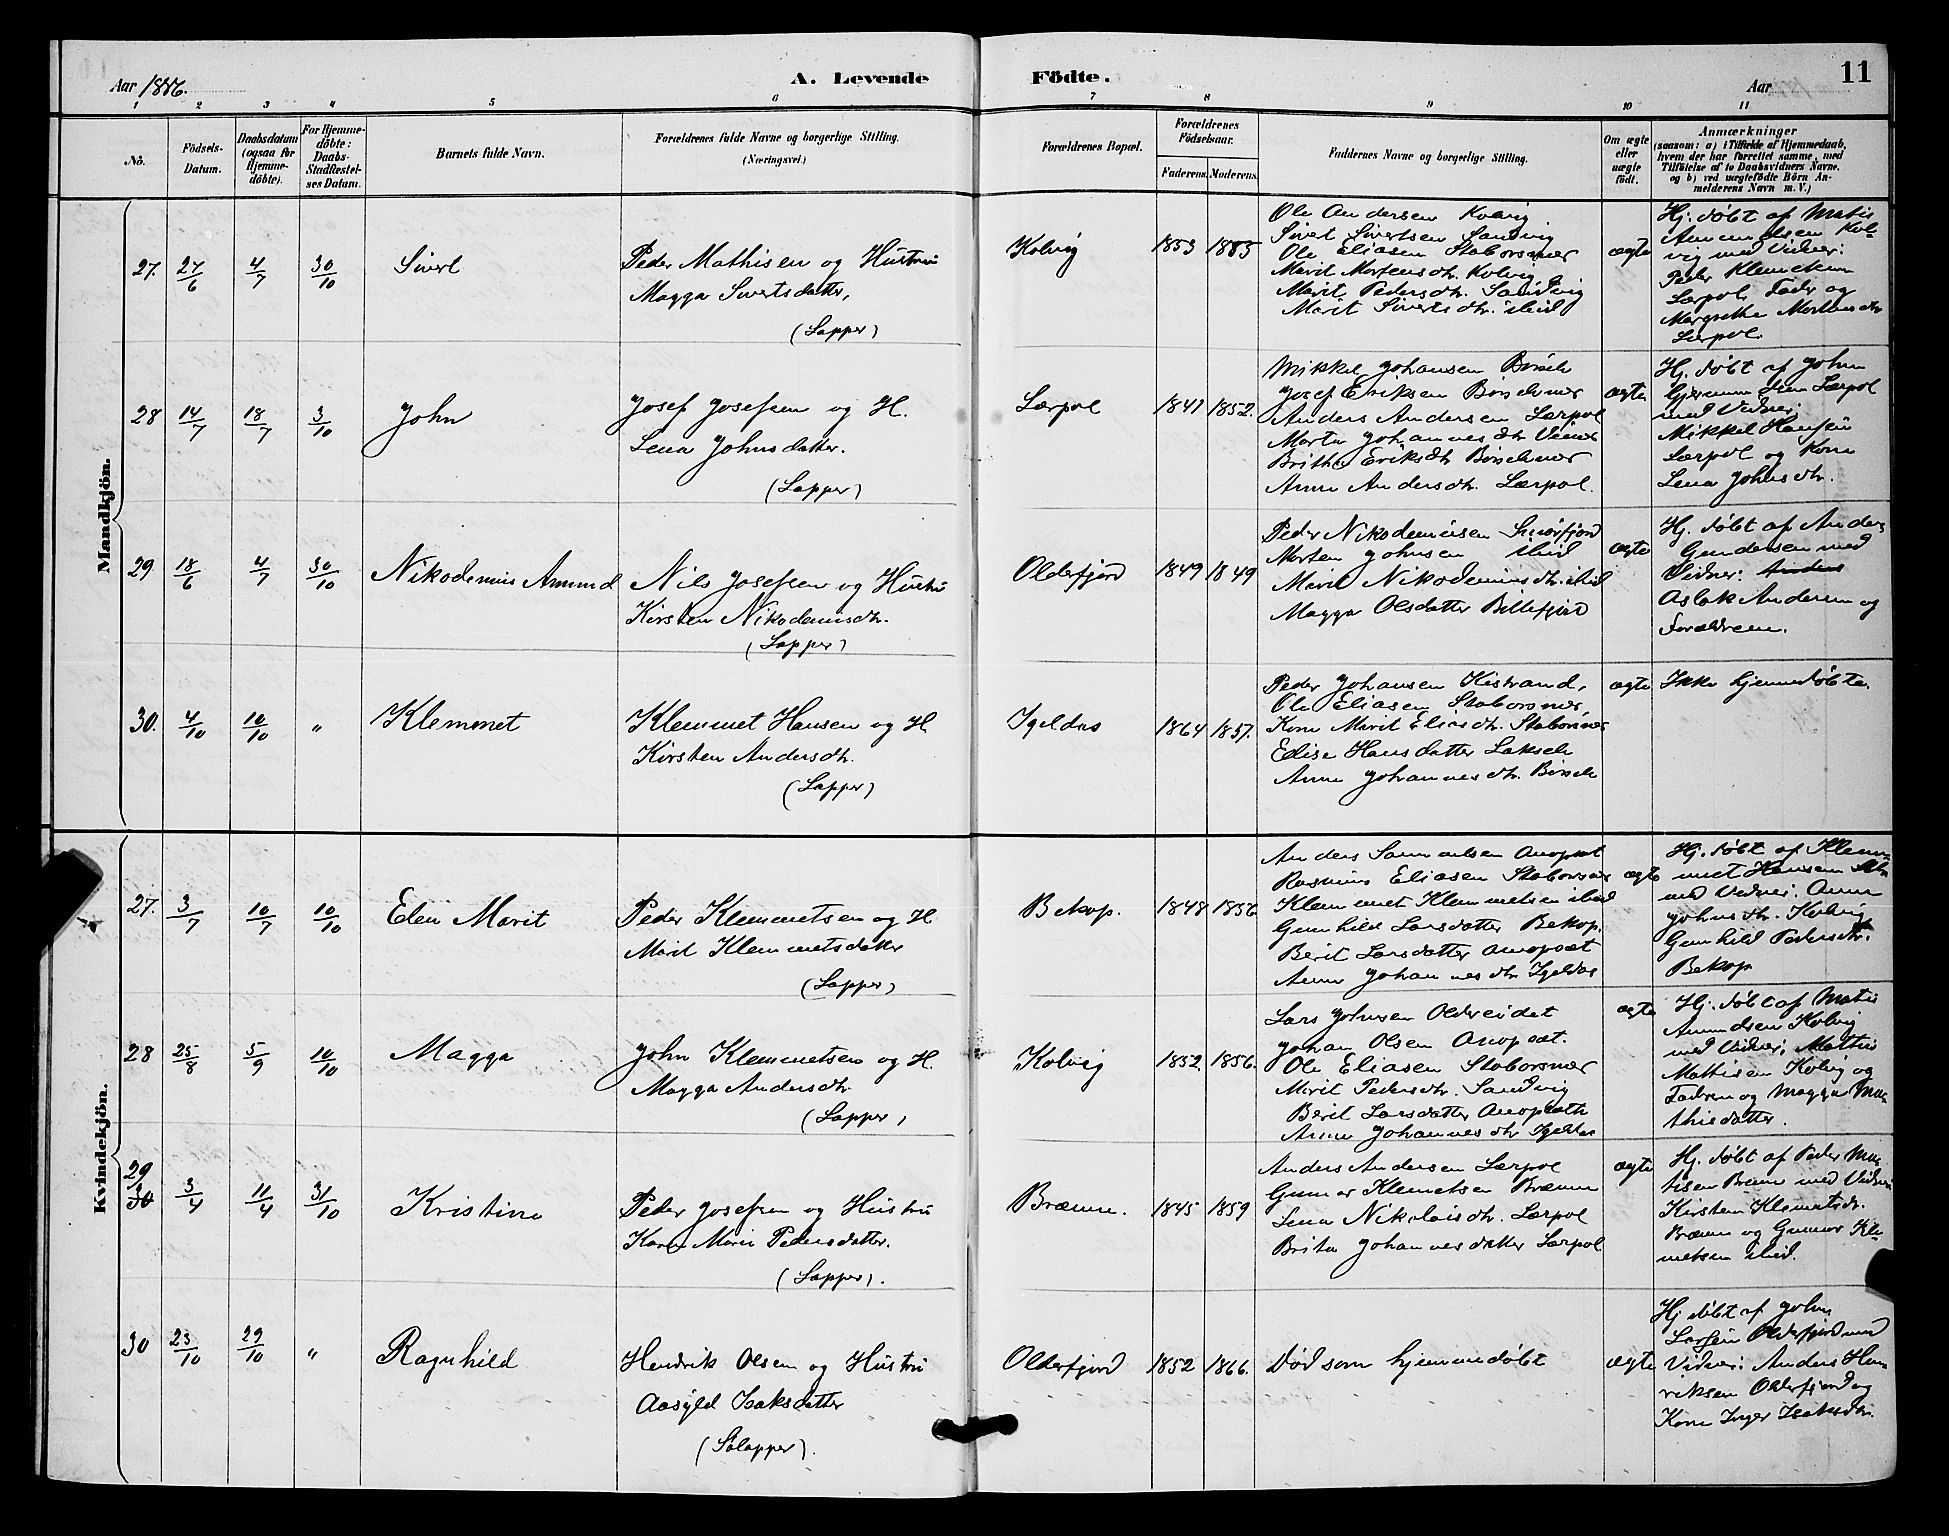 Aar 1886.
A. Levende
Födte.
Aar
11
1 2 3 4 5 6 7 8 9 10 11
No.
Födsels-Datum.
Daabsdatum (ogsaa for Hjemme-döbte).
For Hjemme-döbte: Daabs-Stadfæstel-ses Datum.
Barnets fulde Navn.
Forældrenes fulde Navne og borgerlige Stilling.
(Næringsvei.)
Forældrenes Bopæl.
Forældrenes Födselsaar.
Faderens. Moderens.
Faddernes Navne og borgerlige Stilling.
Om ægte eller uægte födt.
Anmærkninger
(saasom: a) i Tilfælde af Hjemmedaab,
hvem der har forrettet samme, med
Tilföielse af to Daabsvidners Navne,
og b) ved uægtefödte Börn An-
melderens Navn m. V.)
Mandkjön.
27. 27/6 4/7 30/10 Sivert
Peder Mathisen og Hustru
Magga Sivertsdatter,
(Lapper)
Kolvig 1853 1885
Ole Andersen Kolvig
Sivert Sivertsen Sandvig
Ole Eliasen Staborsnær
Marit Mortensdtr. Kolvig
Marit Pedersdtr. Sandvig
Marit Sivertsdtr. ibid
ægte
Hj. döbt af Matis
Amundsen Kol-
vig med Vidner:
Peder Klemetsen
Lærpol, Fader og
Margrethe Mortensdtr
Lærpol.
28 14/7 18/7 3/10 John
Josef Josefsen og H.
Lena Johnsdatter.
(Lapper)
Lærpol 1841 1852.
Mikkel Johansen Börselv
Josef Eriksen Börselvnær
Anders Andersen Lærpol
Marta Johannesdtr
Britha Eriksdtr Börselvnær
Anne Andersdtr. Lærpol.
ægte
Hj. döbt af John
Lærpol
med Vidner:
Mikkel Hansen
Lærpol og Kone
Lena Johnsdtr.
29 18/6 4/7 30/10 Nikodemus Amund
Nils Josefsen og Hustru
Kirsten Nikodemusdtr.
(Lapper)
Olderfjord 1849 1849
Peder Nikodemusen Smörfjord
Morten Johnsen ibid
Marit Nikodemusdtr. ibid
Magga Olsdatter Billefjord
ægte
Hj. döbt af Anders
Gundersen med
Vidner: Anders
Aslak Andersen og
Forældrene.
30. 4/10 10/10 " Klemmet
Klemmet Hansen og H
Kirsten Andersdtr.
(Lapper)
Igeldas 1864 1857.
Peder Johansen Kistrand,
Ole Eliasen Staborsnær,
Kone Marit Eliasdtr. Staborsnær
Edise Hansdatter Lakselv
Anne Johannesdtr. Börselv
ægte
Ikke hjemmedöbt.
Kvindekjön.
27. 3/7 10/7 10/10 Elen Marit
Peder Klemmetsen og H.
Marit Klemmetsdatter
(Lapper)
Bekop. 1848 1856
Anders Samuelsen Anopset
Rasmus Eliasen Staborsnær
Klemmet Klemmetsen ibid
Gunhild Larsdatter Bekop.
Berit Larsdatter Anopset
Anne Johannesdtr Igeldas
ægte
Hj. döbt af Klem-
met Hansen
med Vidner: Anne
Johnsdtr. Kolvig
Gunhild Pedersdtr.
Bekop
28 25/8 5/9 10/10 Magga
John Klemmetsen og H.
Magga Andersdtr.
(Lapper)
Kolvig 1852 1856.
Lars Johnsen Oldereidet
Johan Olsen Anopset.
Ole Eliasen Staborsnær
Marit Pedersdtr. Sandvig
Berit Larsdatter Anopseth
Anne Johannesdtr Igeldas
ægte
Hj. döbt af Matis
Amundsen Kolvig
med Vidner: Mathis
Mathisen Kolvig og
Fadren og Magga Ma-
thisdatter.
29 30 3/4 11/4 31/10 Kristine
Peder Josefsen og Hustru
Karen Marie Pedersdatter.
(Lapper).
Brænne. 1845 1859
Anders Andersen Lærpol
Gunnar Klemetsen Brænne
Lena Nikolaisdtr. Lærpol
Brita Johannesdatter Lærpol
ægte
Hj. döbt af Peder Ma-
tisen Brænne med Vidner
Kirsten Klemetsdr.
Brænne og Gunnar Kle-
metsen ibid.
30 23/10 29/10 " Ragnhild
Hendrik Olsen og Hustru
Aasyld Isaksdatter
(Sölapper).
Olderfjord 1852 1866.
Död som hjemmedöbt
ægte
Hj döbt af John
Larsen Olderfjord med
Vidner: Anders Hen-
riksen Olderfjord og
Kone Inger Isaksdtr.